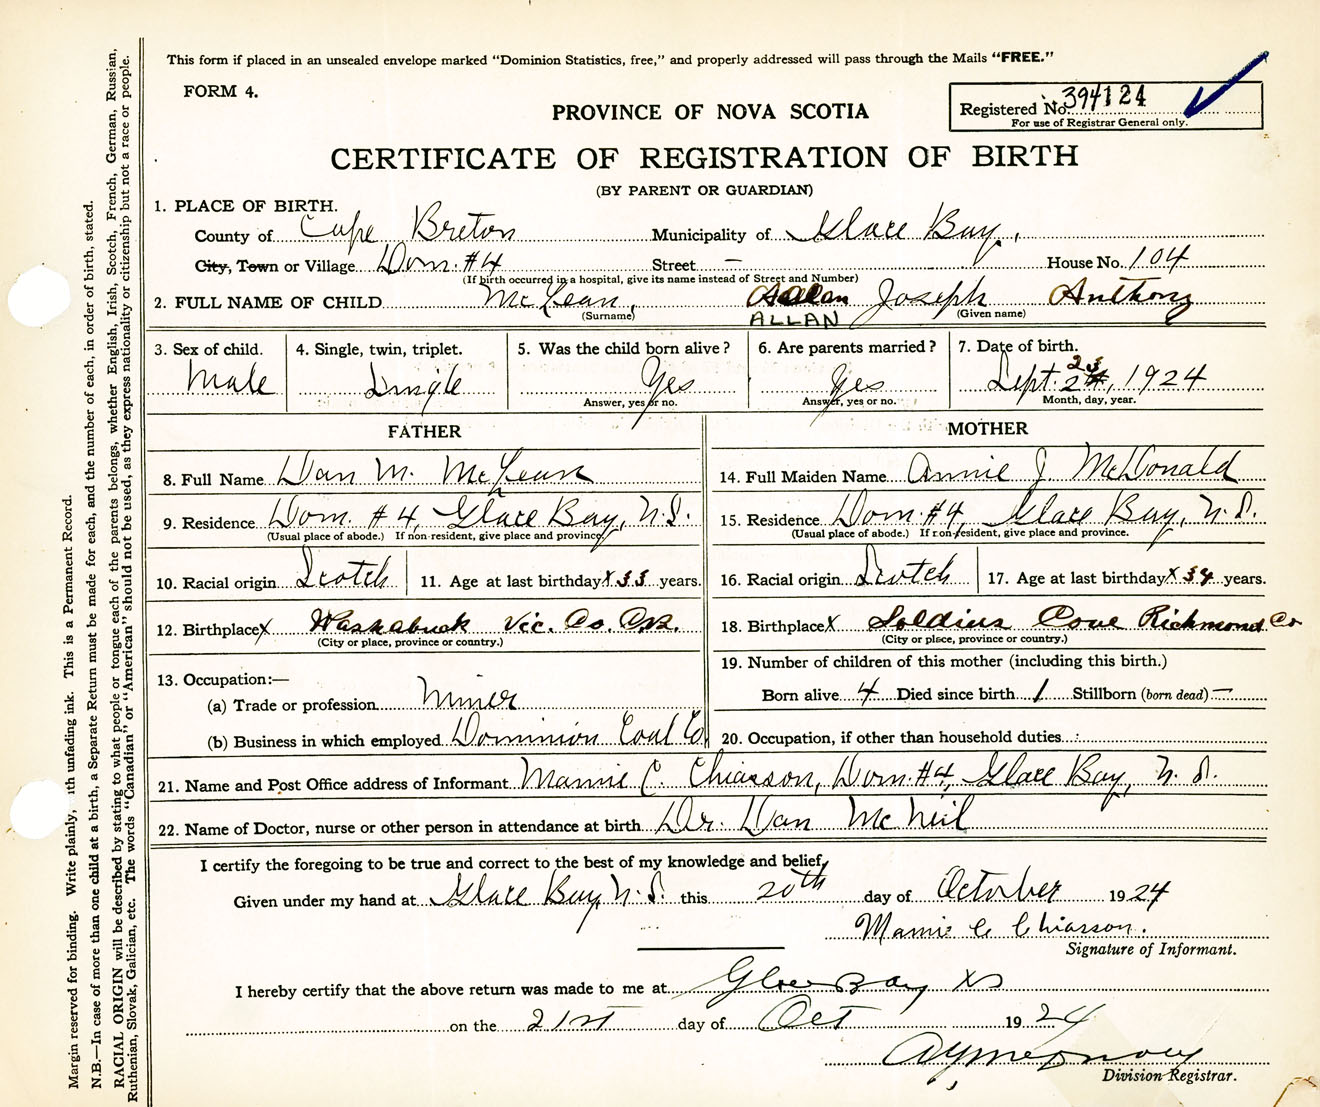 This form if placed in an unsealed envelope marked "Dominion Statistics, free," and properly addressed will pass through the Mails "FREE."
FORM 4.
PROVINCE OF NOVA SCOTIA
Registered No. 394124
For use of Registrar General only.
CERTIFICATE OF REGISTRATION OF BIRTH
(BY PARENT OR GUARDIAN)
1. PLACE OF BIRTH.
County of Cape Breton Municipality of Glace Bay,
City, Town or Village Dom. #4 Street – House No. 104
(If birth occurred in a hospital, give its name instead of Street and Number)
2. FULL NAME OF CHILD McLean, Allan Joseph Anthony
(Surname) (Given name)
ALLAN
3. Sex of child. 4. Single, twin, triplet. 5. Was the child born alive? 6. Are parents married? 7. Date of birth.
Male Single Yes Yes Sept. 23, 1924
Answer, yes or no. Answer, yes or no. Month, day, year.
FATHER MOTHER
8. Full Name Dan M. McLean 14. Full Maiden Name Annie J McDonald
9. Residence Dom. #4, Glace Bay, N.S. 15. Residence Dom. #4, Glace Bay, N.S.
(Usual place of abode.) If non-resident, give place and province. (Usual place of abode.) If non-resident, give place and province.
10. Racial origin Scotch 11. Age at last birthday X 33 years. 16. Racial origin Scotch 17. Age at last birthday X 34 years.
12. Birthplace X Washabuck Vic. Co. C.B. 18. Birthplace X Soldiers Cove Richmond Co
(City or place, province or country.) (City or place, province or country.)
13. Occupation:— 19. Number of children of this mother (including this birth.)
(a) Trade or profession Miner Born alive 4 Died since birth 1 Stillborn (born dead) —
(b) Business in which employed Dominion Coal Co 20. Occupation, if other than household duties
21. Name and Post Office address of Informant Mamie C. Chiasson, Dom. #4, Glace Bay, N.S.
22. Name of Doctor, nurse or other person in attendance at birth Dr. Dan McNeil
I certify the foregoing to be true and correct to the best of my knowledge and belief,
Given under my hand at Glace Bay, N.S. this 20th day of October 1924
Mamie C Chiasson.
Signature of Informant.
I hereby certify that the above return was made to me at Glace Bay NS
on the 21st day of Oct 1924
Division Registrar.
Margin reserved for binding. Write plainly, with unfading ink. This is a Permanent Record.
N.B.—In case of more than one child at a birth, a Separate Return must be made for each, and the number of each, in order of birth, stated.
RACIAL ORIGIN will be described by stating to what people or tongue each of the parents belongs, whether English, Irish, Scotch, French, German, Russian,
Ruthenian, Slovak, Galician, etc. The words "Canadian" or "American" should not be used, as they express nationality or citizenship but not a race or people.